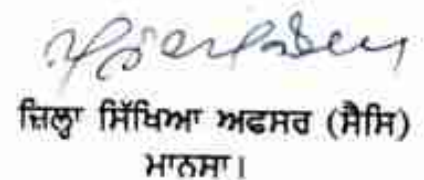 ਜ਼ਿਲ੍ਹਾ ਸਿੱਖਿਆ ਅਫਸਰ (ਸੈਸਿ)
ਮਾਨਸਾ।